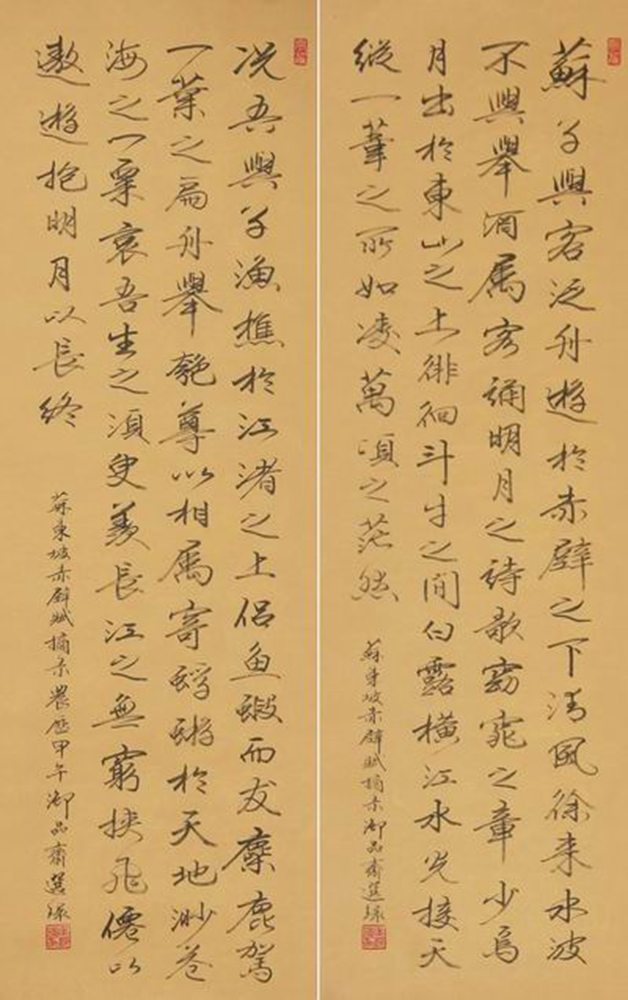 蘇子與客泛舟遊於赤壁之下清風徐来水波
不興舉酒属客誦明月之詩歌窈窕之章少焉
月出於東山之上徘徊斗牛之間白露横江水光接天
縱一葦之所如凌萬頃之茫然
蘇東坡赤壁賦摘录御品齋選録
况吾與子漁樵於江渚之上侣鱼蝦而友麋鹿駕
一葉之扁舟舉匏尊以相属寄蜉蝣於天地渺蒼
海之一粟哀吾生之須臾羡長江之無窮挟飛僊以
遨遊抱明月以長終
蘇東坡赤壁賦摘录農歷甲午御品齋選録